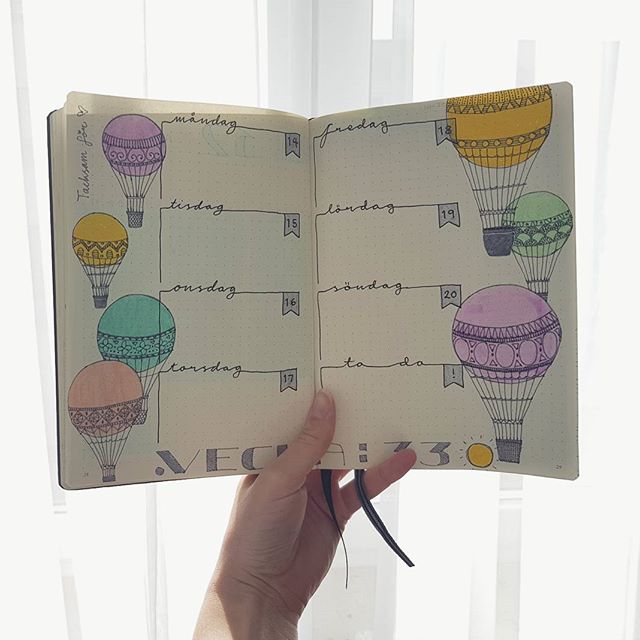 Tacksam för
måndag 14
tisdag 15
onsdag 16
torsdag 17
fredag 18
lördag 19
söndag 20
to do !
VECKA: 33
28
29